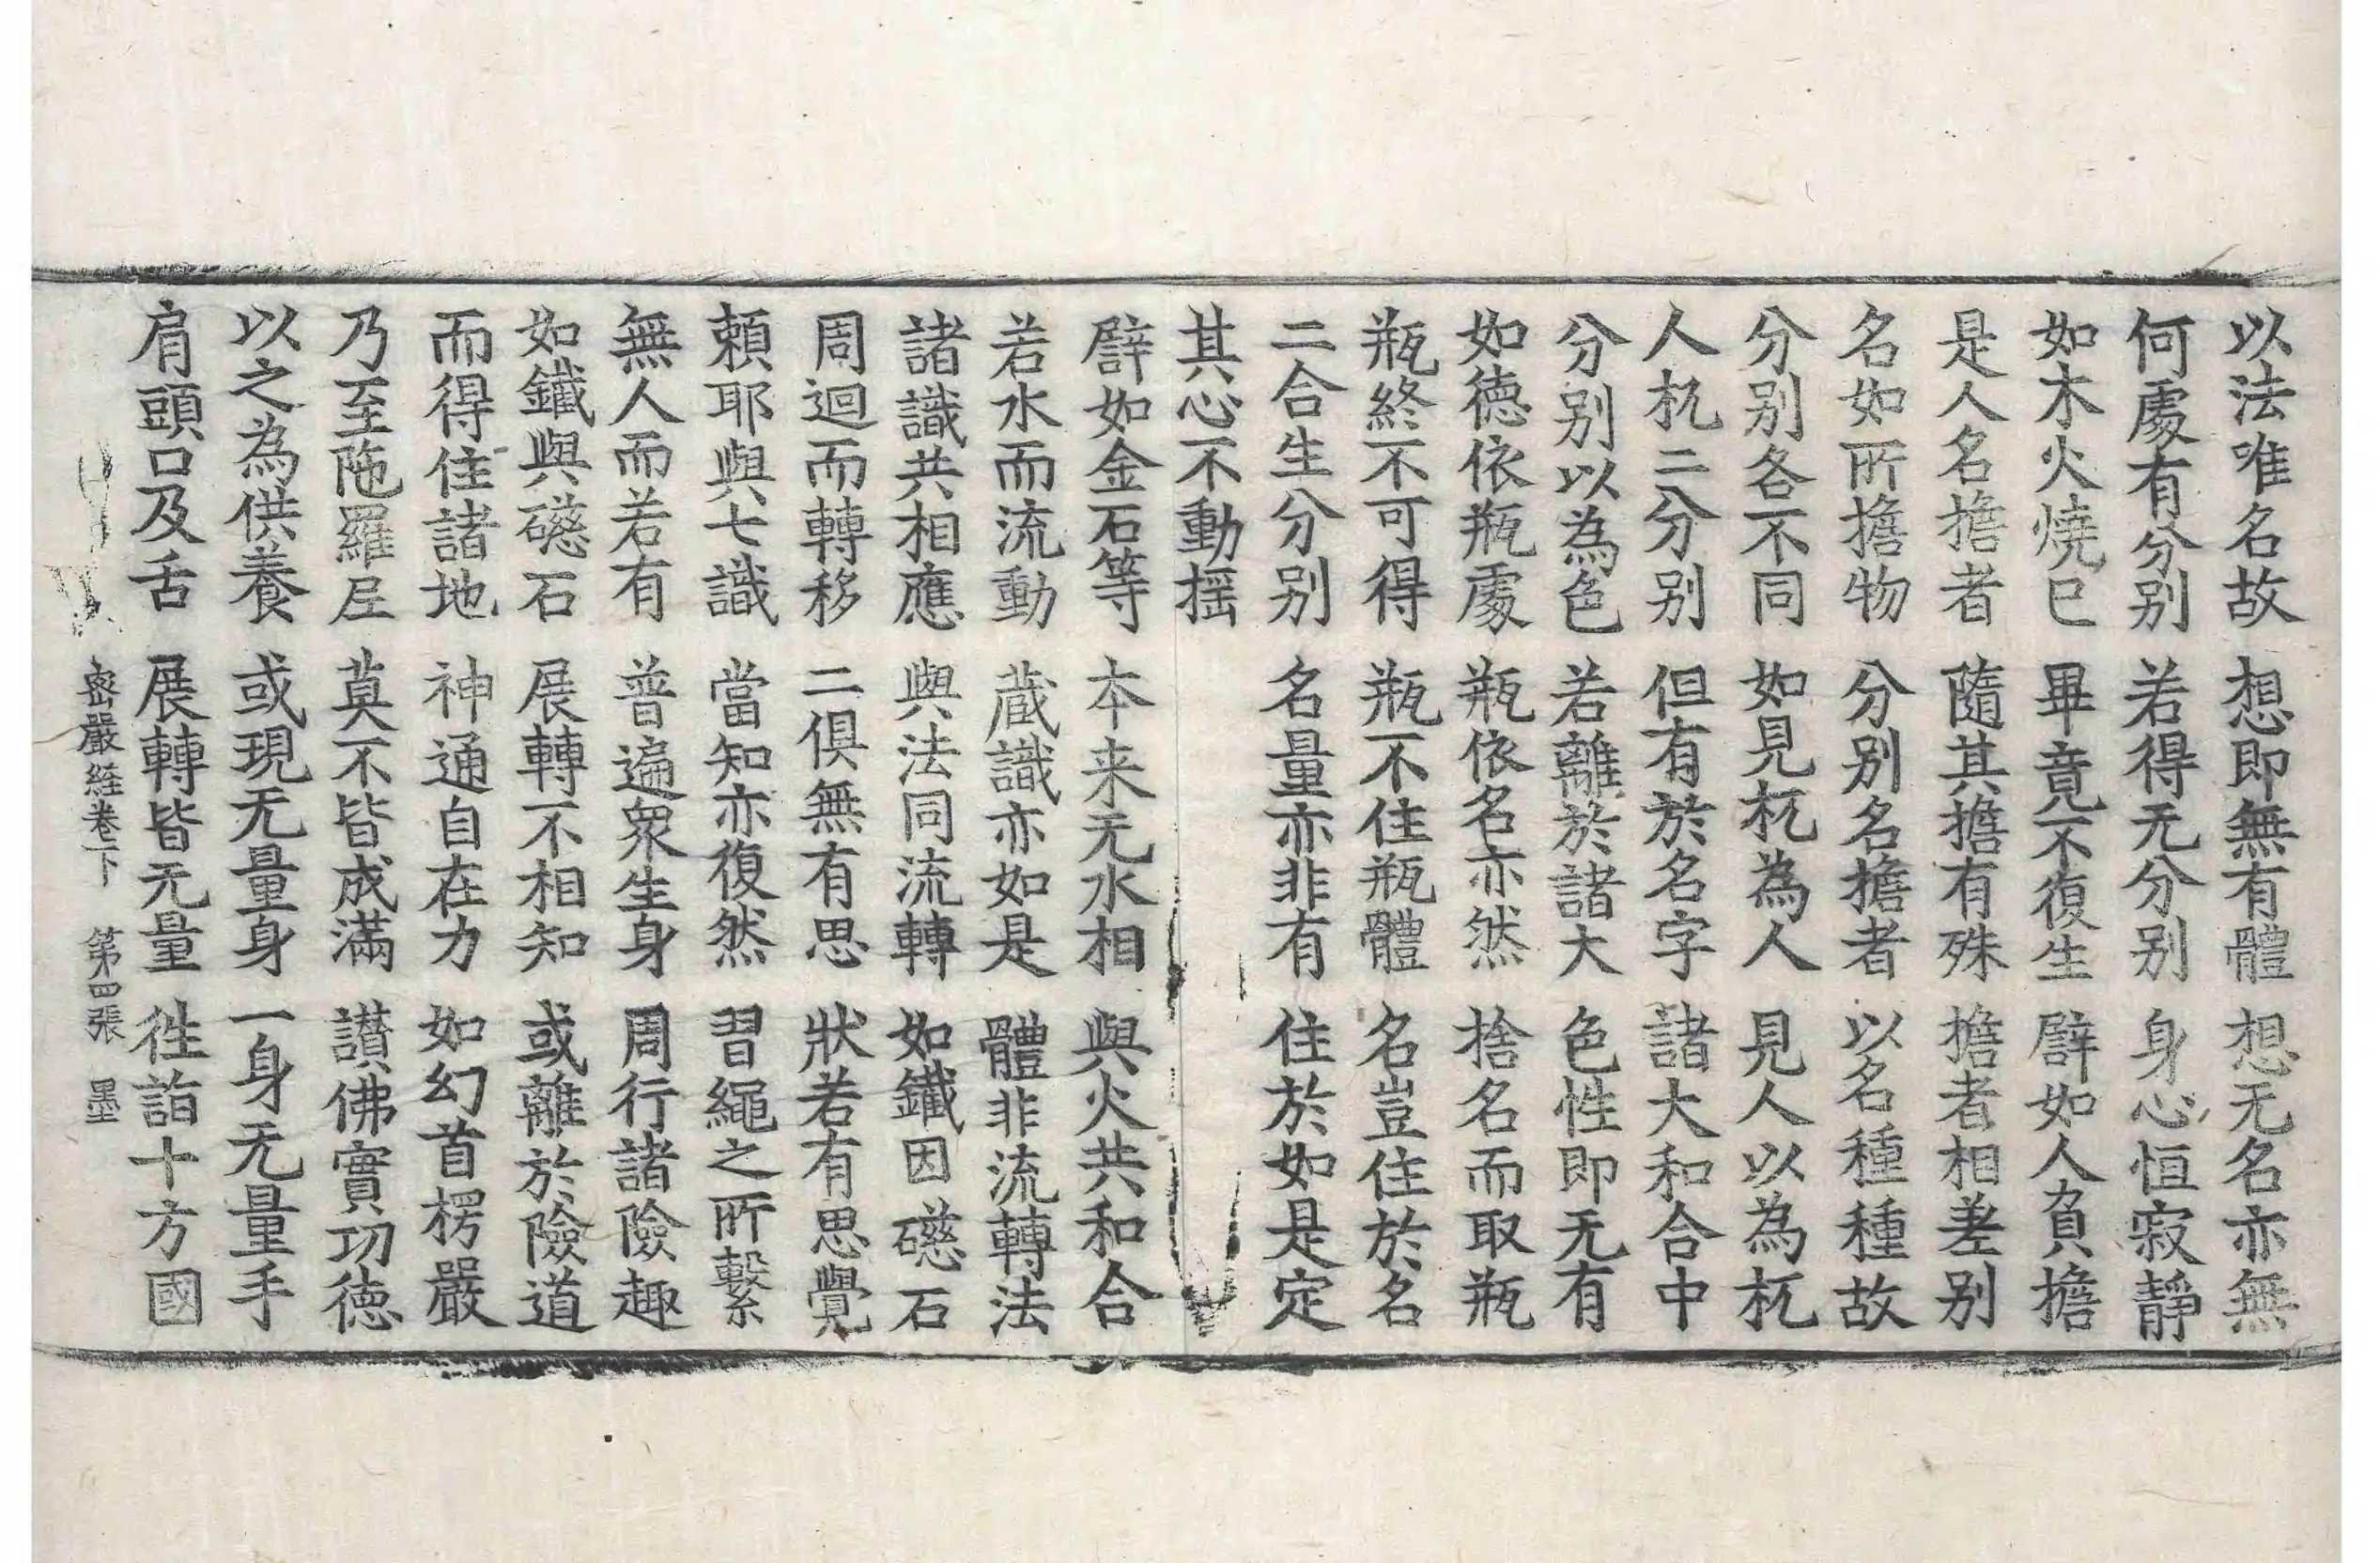 以法唯名故 想即無有體 想无名亦無
何處有分别 若得无分别 身心恒寂靜
如木火燒已 畢竟不復生 譬如人負擔
是人名擔者 隨其擔有殊 擔者相差别
名如所擔物 分别名擔者 以名種種故
分别各不同 如見杌為人 見人以為杌
人杌二分别 但有於名字 諸大和合中
分别以為色 若離於諸大 色性即无有
如德依瓶處 瓶依名亦然 捨名而取瓶
瓶終不可得 瓶不住瓶體 名豈住於名
二合生分别 名量亦非有 住於如是定
其心不動摇
譬如金石等 本来无水相 與火共和合
若水而流動 蔵識亦如是 體非流轉法
諸識共相應 與法同流轉 如鐵因礠石
周迴而轉移 二俱無有思 狀若有思覺
頼耶與七識 當知亦復然 習繩之所繫
無人而若有 普遍衆生身 周行諸險趣
如鐵與礠石 展轉不相知 或離於險道
而得住諸地 神通自在力 如幻首楞嚴
乃至陁羅尼 莫不皆成滿 讃佛實功德
以之為供養 或現无量身 一身无量手
肩頭口及舌 展轉皆无量 徃詣十方國
密嚴経卷下 第四張 墨